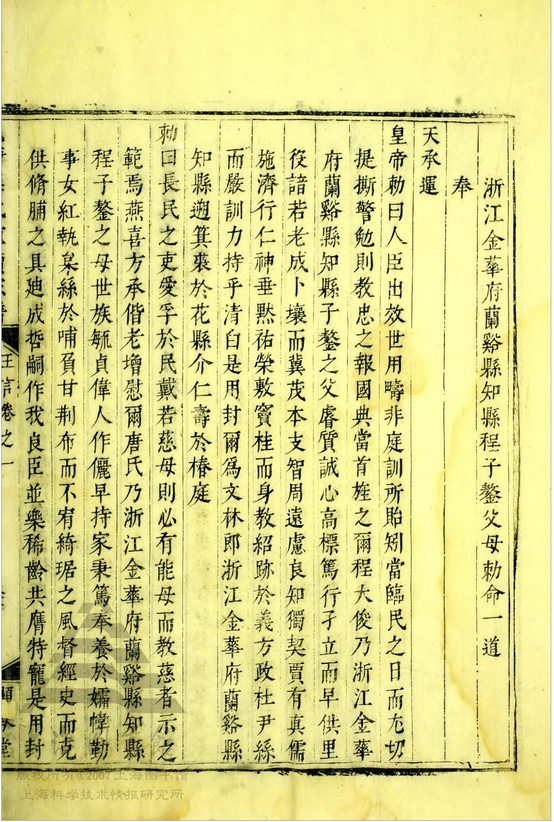 浙江金華府蘭谿縣知縣程子鏊父母勅命一道
奉
天承運
皇帝勅曰人臣出效世用疇非庭訓所貽矧當臨民之日而尤切
提撕警勉則教忠之報國典當首旌之爾程大俊乃浙江金華
府蘭谿縣知縣子鏊之父睿質誠心高標篤行孑立而早供里
役諳若老成卜壤而冀茂本支智周遠慮良知獨契賈有真儒
施濟行仁神垂黙祐榮敷竇桂而身教紹跡於義方政杜尹絲
而嚴訓力持乎清白是用封爾為文林郎浙江金華府蘭谿縣
知縣遡箕裘於花縣介仁壽於椿庭
勅曰長民之吏愛孚於民戴若慈母則必有能母而教慈者示之
範焉燕喜方承偕老增慰爾唐氏乃浙江金華府蘭谿縣知縣
程子鏊之母世族毓貞偉人作儷早持家秉篤奉養於孀幃勤
事女紅執枲絲於哺負甘荆布而不宥綺琚之風督經史而克
供脩脯之具廸成哲嗣作我良臣並樂稀齡共膺特寵是用封
王言卷之一
版权所有©2007上海图书馆
上海科学技术情报研究所